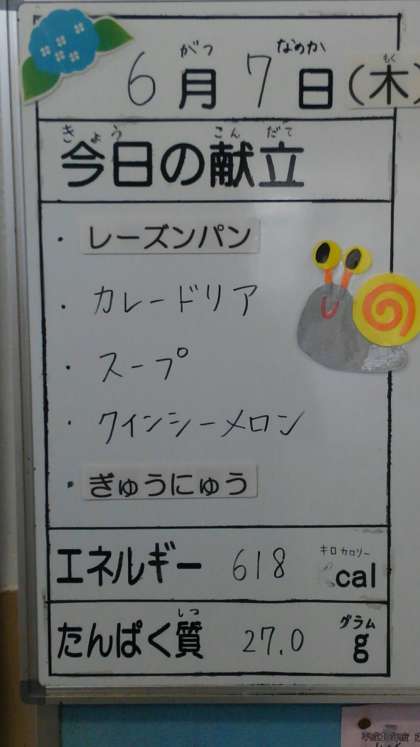 6月7日(木)
がつ なのか もく
今日の献立
きょう こん だて
・レーズンパン
・カレードリア
・スープ
・クインシーメロン
・ぎゅうにゅう
エネルギー 618 cal
キロカロリー
たんぱく質 27.0 g
しつ グラム